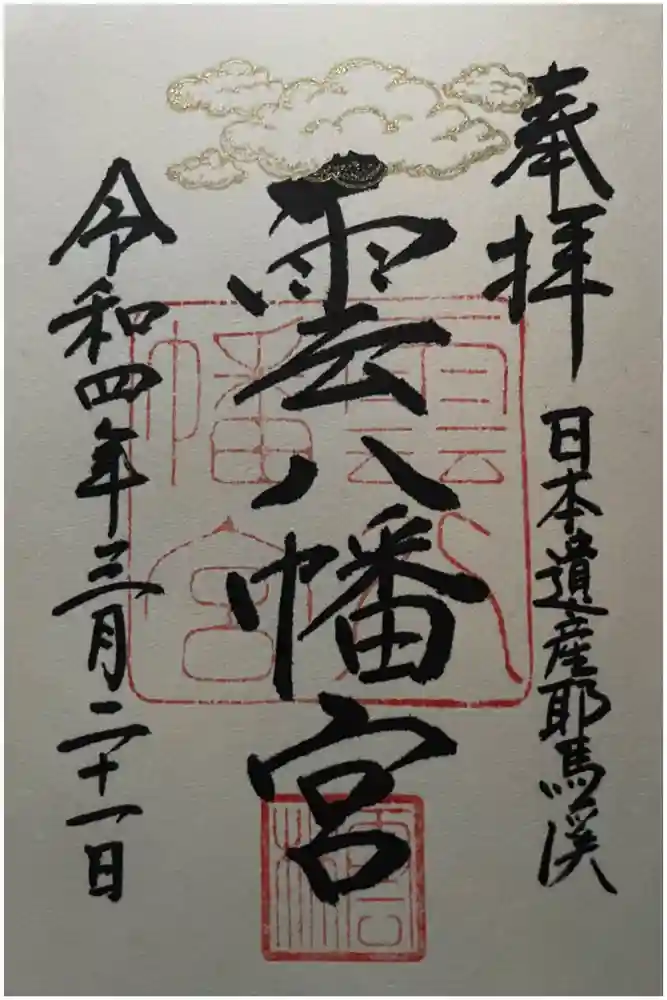 奉拝
日本遺産耶馬溪
雲八幡宮
雲八幡宮
令和四年三月二十一日